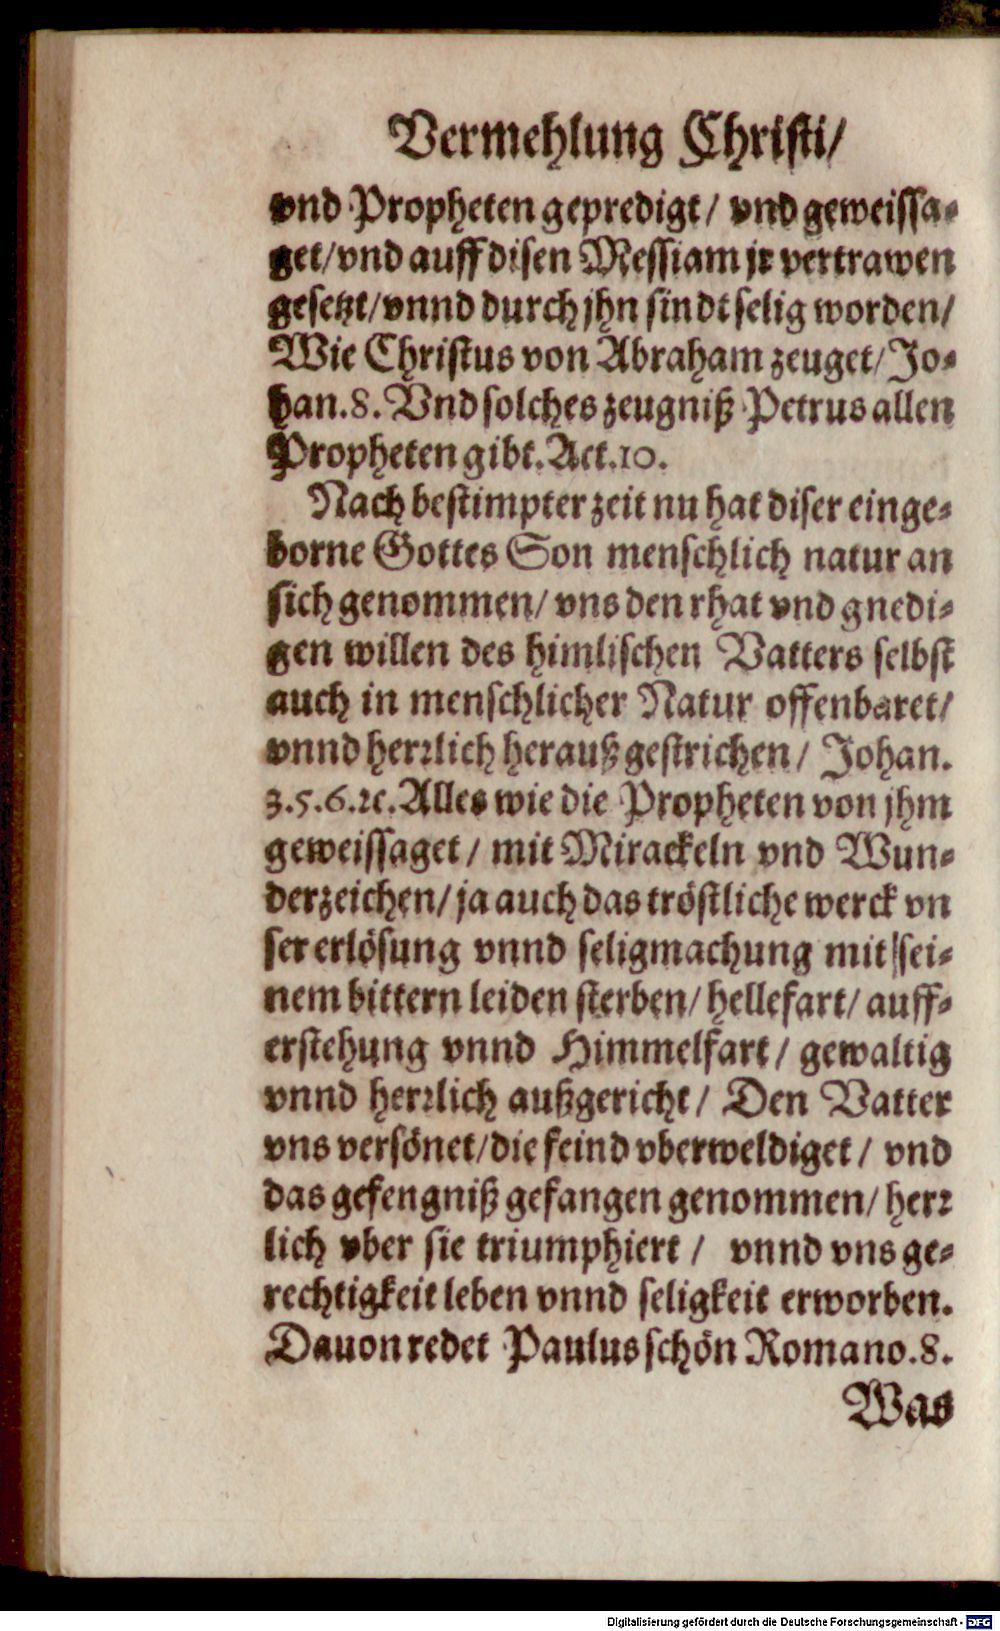 Vermehlung Christi/
vnd Propheten gepredigt/ vnd geweissa⸗
get/vnd auff disen Messiam jr vertrawen
gesetzt/vnnd durch jhn sindt selig worden/
Wie Christus von Abraham zeuget/Jo⸗
han.8. Vnd solches zeugniß Petrus allen
Propheten gibt.Act.10.
Nach bestimpter zeit nu hat diser einge⸗
borne Gottes Son menschlich natur an
sich genommen/ vns den rhat vnd gnedi⸗
gen willen des himlischen Vatters selbst
auch in menschlicher Natur offenbaret/
vnnd herꝛlich herauß gestrichen/ Johan.
3.5.6.ꝛc.Alles wie die Propheten von jhm
geweissaget/ mit Mirackeln vnd Wun⸗
derzeichen/ja auch das tröstliche werck vn
ser erlösung vnnd seligmachung mit sei⸗
nem bittern leiden sterben/ hellefart/ auff⸗
erstehung vnnd Himmelfart/ gewaltig
vnnd herꝛlich außgericht/ Den Vatter
vns versönet/die feind vberweldiget/ vnd
das gefengniß gefangen genommen/ herꝛ
lich vber sie triumphiert/ vnnd vns ge⸗
rechtigkeit leben vnnd seligkeit erworben.
Dauon redet Paulus schön Romano.8.
Was
Digitalisierung gefördert durch die Deutsche Forschungsgemeinschaft - DFG